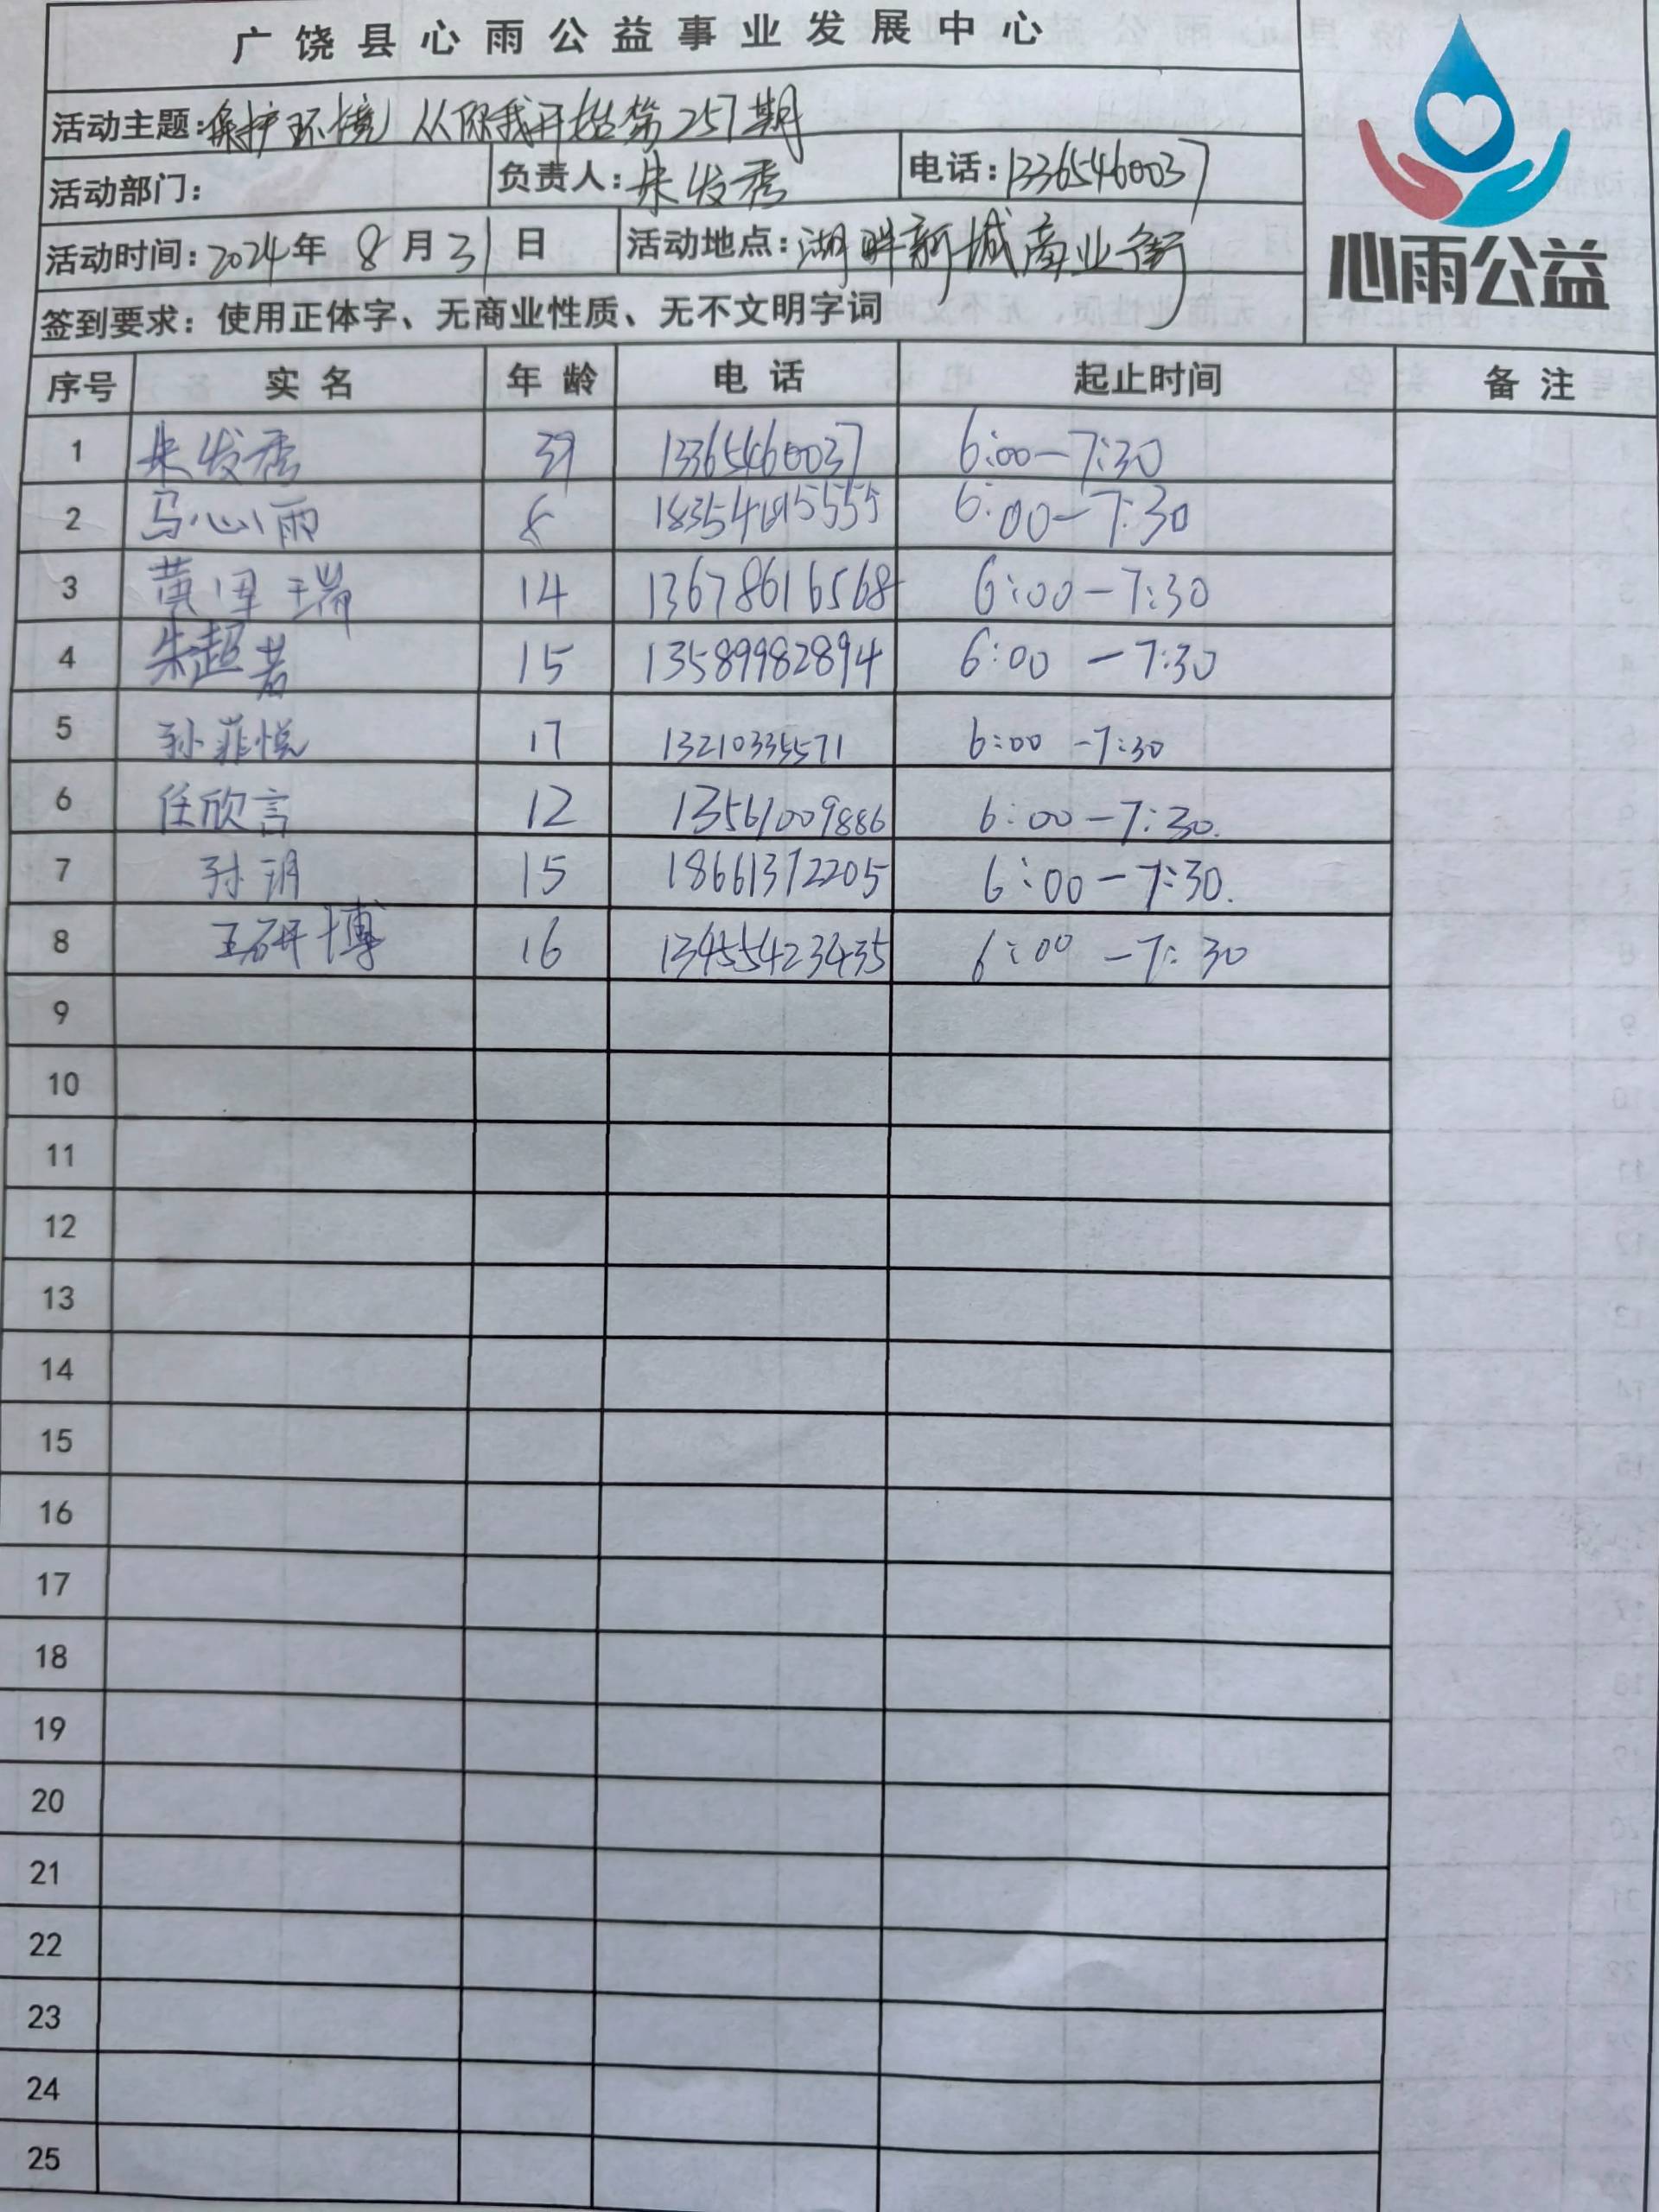 广饶县心雨公益事业发展中心
心雨公益
活动主题:保护环境 从你我开始第257期
活动部门: 负责人:朱发秀 电话:13365460037
活动时间:2024年 8月31日 活动地点:湖畔新城商业街
签到要求:使用正体字、无商业性质、无不文明字词
序号 实名 年龄 电话 起止时间 备注
1 朱发秀 39 13365460037 6:00-7:30
2 马心雨 8 6:00-7:30
3 14 13678616568 6:00-7:30
4 朱超若 15 13589982894 6:00 -7:30
5 孙菲悦 17 13210335571 6:00 -7:30
6 任欣言 12 13561009886 6:00-7:30.
7 孙玥 15 18661372205 6:00-7:30.
8 王研博 16 13455423435 6:00 -7:30
9
10
11
12
13
14
15
16
17
18
19
20
21
22
23
24
25